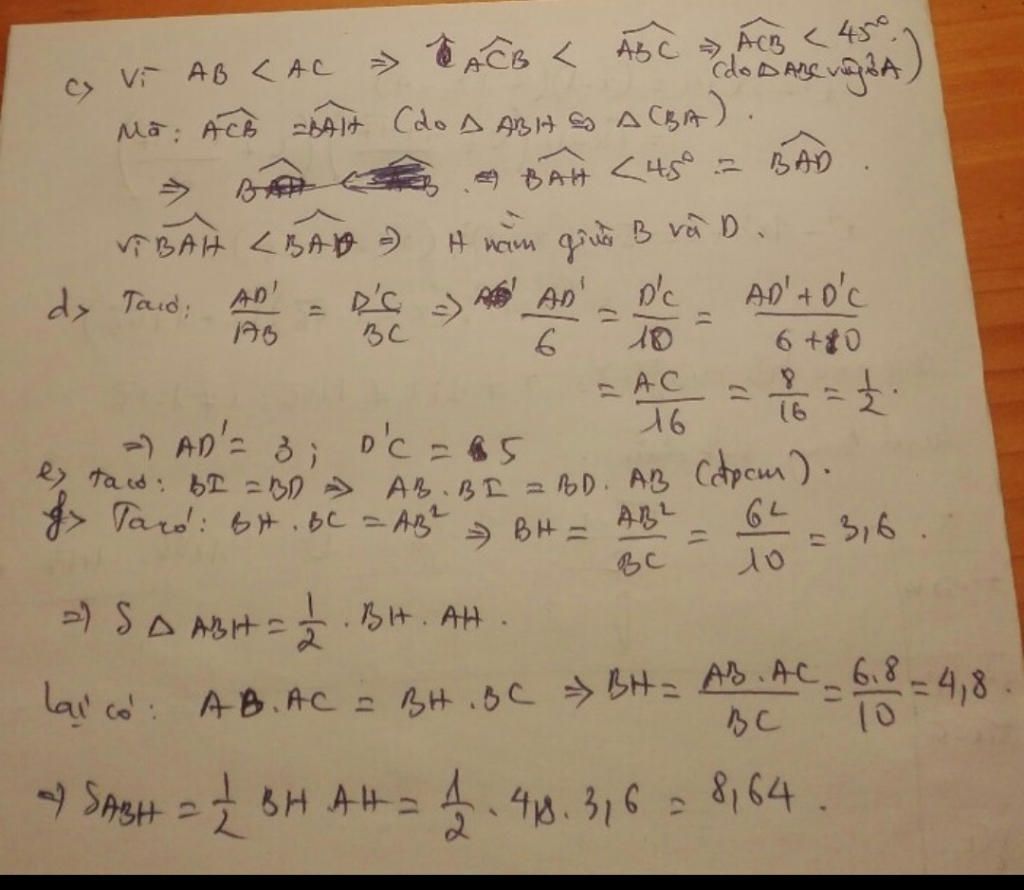 c) Vì AB < AC ⇒ \widehat{ACB} < \widehat{ABC} ⇒ \widehat{ACB} < 45°.
(do Δ ABC vuông ở A)
Mà: \widehat{ACB} = \widehat{BAH} (do Δ ABH ∽ Δ CBA).
⇒ \widehat{BAH} < 45° = \widehat{BAD}.
vì \widehat{BAH} < \widehat{BAD} ⇒ H nằm giữa B và D.
d) Ta có: \frac{AD'}{AB} = \frac{D'C}{BC} ⇒ \frac{AD'}{6} = \frac{D'C}{10} = \frac{AD' + D'C}{6 + 10}
= \frac{AC}{16} = \frac{8}{16} = \frac{1}{2}.
⇒ AD' = 3 ; D'C = 5
e) Ta có: BI = BD ⇒ AB . BI = BD . AB (đpcm).
g) Ta có: BH . BC = AB² ⇒ BH = \frac{AB²}{BC} = \frac{6²}{10} = 3,6.
⇒ S Δ ABH = \frac{1}{2} . BH . AH.
Lại có: AB . AC = BH . BC ⇒ BH = \frac{AB . AC}{BC} = \frac{6.8}{10} = 4,8.
⇒ S_{ABH} = \frac{1}{2} BH . AH = \frac{1}{2} . 4,8 . 3,6 = 8,64.